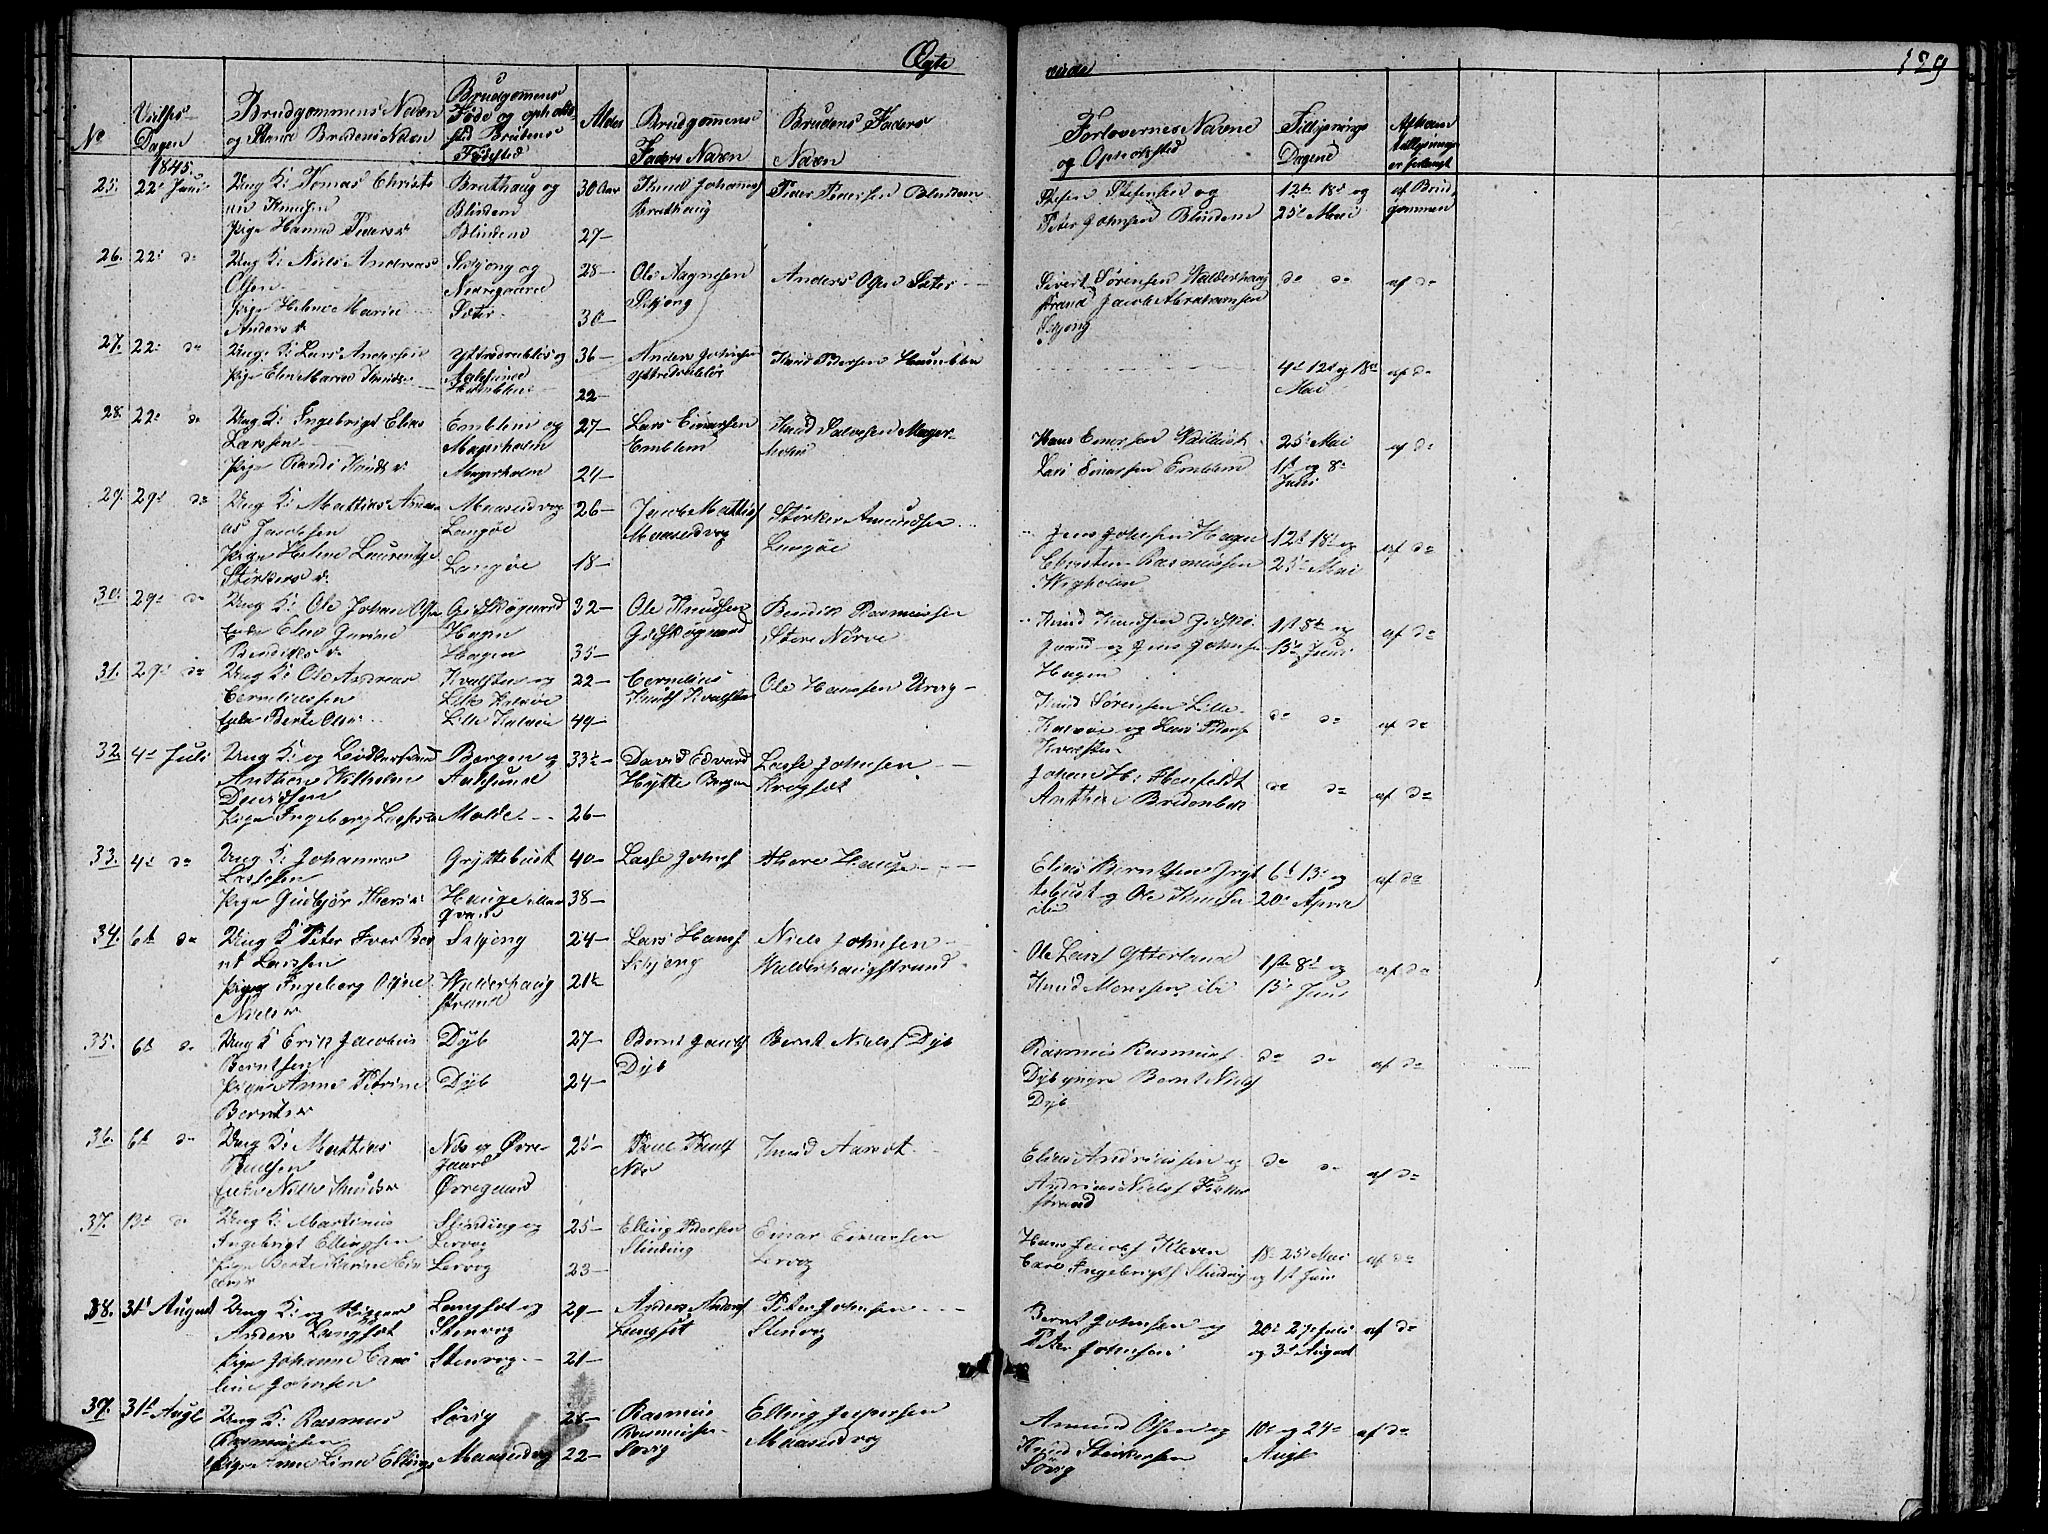 Ægte
viede
129
No
Vielses-
Dagen
Brudgommens Navn
og Stand Brudens Navn
Brudgomens
Føde og opholds
sted Brudens
Fødested
Alder
Brudgomens
Faders Navn
Brudens Faders
Navn
Forlovernes Navne
og Opholdsted
Tillysnings
Dagene
Af hvem
tillysninge
er forlangt
1845.
25. 22de Juni Ung K: Tomas Christi
an Knudsen
Pige Hanna Peders d.
Brathaug og
Blindem
Blindem
30 Aar
27-
Knud Johans
Brathaug
Peder Pedersen Blindem
Stefen Stefensen og
Peter Johnsen Blindem
12te 18de og
25de Mai
af Brud
gommen
26. 22de do Ung K: Niels Andreas
Olsen
Pige Helene Marie
Anders d.
Sæter
28-
30-
Ole
Anders Olsen Sæter
Sivert Sørensen Walderhaug
strand Jacob Abrahamsen
do do
af do
27. 22de do Ung K: Lars Andersen
Pige Elen Marie Knuds
og
Aalesund
Humblen
36-
22-
Anders Johnsen
Knud Pedersen Humblen
4de 12te og 18de
Mai
af do
28. 22de do Ung K: Ingebrigt Elias
Larsen
Pige Randi Knuds d.
Emblem og
Magerholm
Magerholm
27-
24
Lars Einarsen
Emblem
Knud Salvesen Mager-
holm
Hans Einarsen
Lars Einarsen Emblem
25de Mai
1ste og 8de
Juni
af do
29. 29de do Ung K: Mathias Andre
as Jacobsen
Pige Helene Laurentse
Størkers d.
Maaseidvog
Langøe
Langøe
26-
18-
Jacob Mathias
Maaseidvog
Størker Amundsen
Langøe
Jens Johnsen Hagen
Christen Rasmussen
Wigholm
12te 18de og
25de Mai
af do
30. 29de do Ung K: Ole Johan Olsen
Enke Elen Gurine
Bendiks d.
Gidskøgaard
Hagen
Hagen
32-
35-
Ole Knudsen
Gidskøgaard
Bendik Rasmussen
Store Nørve
Knud Knudsen Gidskø
gaard og Jens Johnsen
Hagen
1ste 8de og
15de Juni
af do
31. 29de do Ung K: Ole Andreas
Cornliussen
Enke Berte Ols
Kvalsten og
Lille Kalvøe
Lille Kalvøe
22-
49-
Cornelius
Knuds Kvalsten
Ole Hanssen Urvig
Knud Sørensen Lille
Kalvøe og Lars
Kvalsten
do do
af do
32. 4de Juli Ung K: og Bødkersvend
Anthon Wilhelm
Davidsen
Pige Ingeborg Lasses d
Bergen og
Aalesund
Molde
33te-
26-
David Edvard
Hytte Bergen
Lasse Johnsen
Krogsæt
Johan H:
Anthon Bredenbek
do do
af do
33. 4de do Ung K: Johannes
Lassesen
Pige Gudbjør Thores d.
Gryttebust
Hauge
40-
38-
Lasse Johns
Thore Hauge
Elias Berntsen Gryt
tebust og Ole Knudsen
6te 13de og
20de April
af do
34. 6te do Ung K Peter Iver Ber
nt Larssen
Pige Ingeborg Oline
Niels d
Walderhaug
strand
24-
21te
Lars Hans
Niels Johnsen
Walderhaugstrand
Ole Lars Ytterland
Knud Monssen ibi
1ste 8de og
15de Juni
af do
35. 6te do Ung K Erik Jacobus
Berntsen
Pige Anne Petrine
Bernts d
Dyb
Dyb
27-
24-
Bernt Jacobs
Dyb
Bernt Niels Dyb
Rasmus Rasmus
Dyb yngre Bernt Niels
Dyb
do do
af do
36. 6te do Ung K: Mathias
Paulsen
Enke Nille Knuds d
og Øvre
gaard
Øvregaard
25-
Paul Knuds
Knud
Elias Andreassen og
Andreas Niels
strand
do do
af do
37. 13de do Ung K: Martinus
Ingebrigt Ellingsen
Pige Berte Karine Ein
ars d
Slinding og
Lervog
Lervog
25-
23-
Elling Pedersen
Slinding
Einar Einarsen
Lervog
Hans Jacobs Kleven
Carl Ingebrigts Slinding
18de 25de Mai
og 1ste Juni
af do
38. 31te August Ung K: og
Anders Langsæt
Pige Johanne Caro
line Johnsen
Langsæt og
Stenvog
Stenvog
29-
21-
Anders Anders
Langsæt
Peter Johnsen
Stenvog
Bernt Johnsen og
Peter Johnsen
20de 27de Juli
og 3de August
af do
39. 31te Augt Ung K: Rasmus
Rasmussen
Pige Anne Lina Ellings
Søvig
Maaseidvog
28-
22-
Rasmus
Rasmussen
Søvig
Elling Jespersen
Maaseidvog
Amund Olsen og
Knud Størkersen
Søvig
10de og 24de
Augt
af do